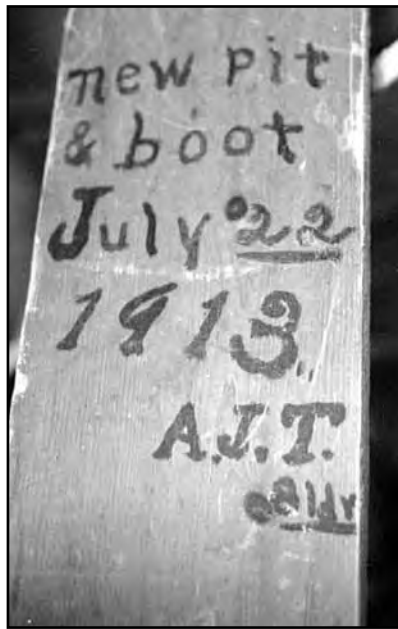 new pit
& boot
July 22
1913
A.J.T.
Bldr